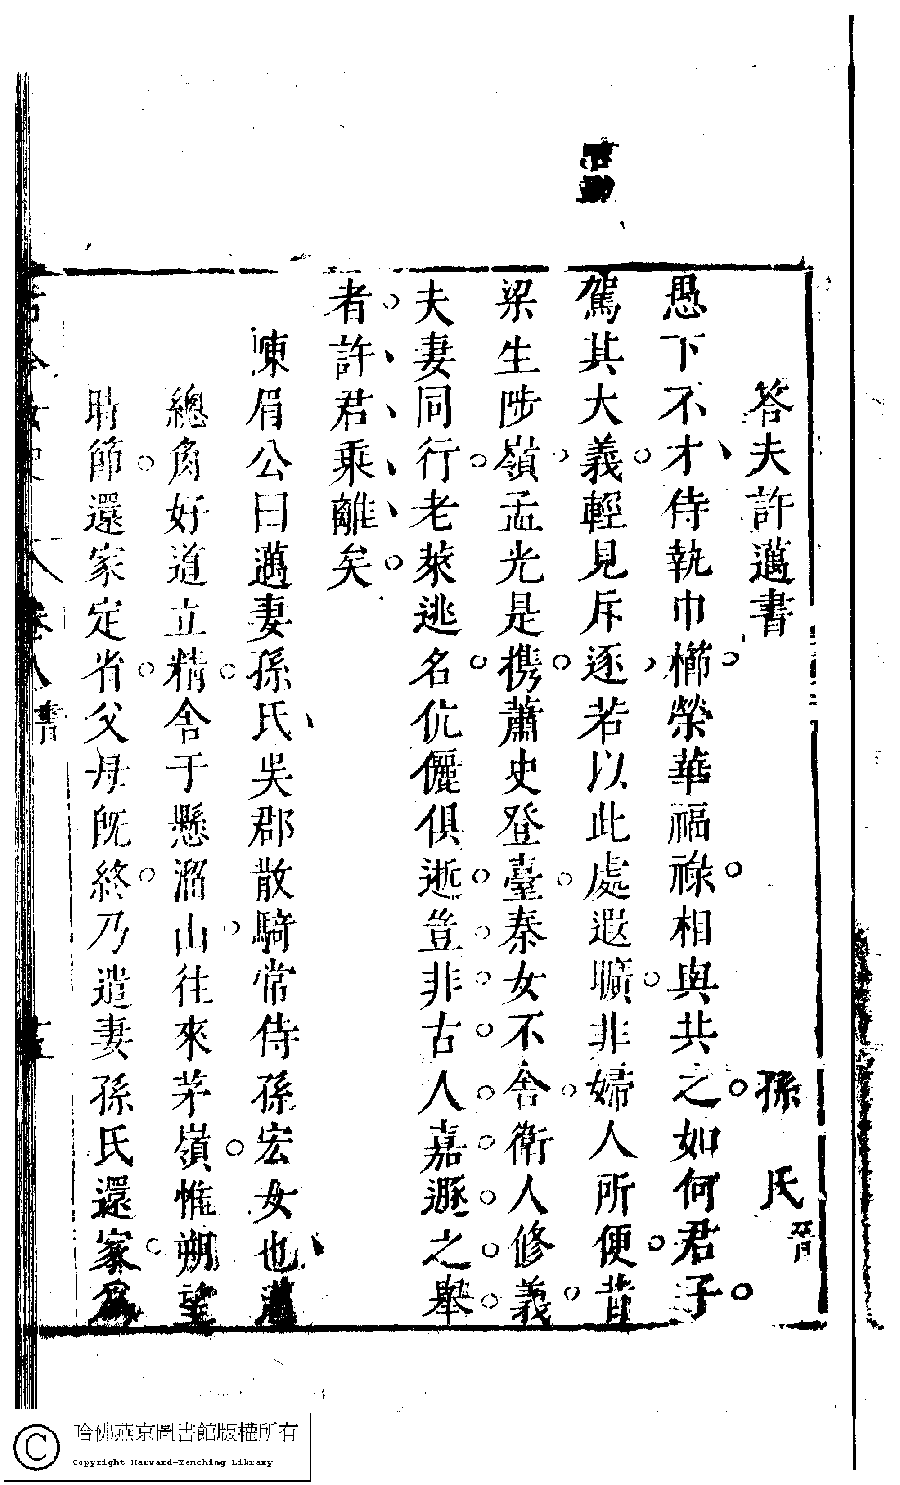 答夫許邁書
孫氏晉
愚下不才侍執巾櫛榮華福祿相與共之如何君子
駕其大義輕見斥逐若以此處遐曠非婦人所便昔
梁生陟嶺孟光是携蕭史登臺秦女不舍衛人修義
夫妻同行老萊逃名伉儷俱逝豈非古人嘉遯之舉
者許君乘離矣
陳眉公曰邁妻孫氏吳郡散騎常侍孫宏女也邁
總角好道立精舍于懸溜山往來茅嶺惟朔望
時節還家定省父母旣終乃遣妻孫氏還家爲
卷八 書
哈佛燕京圖書館版權所有
Copyright Harvard-Yenching Library